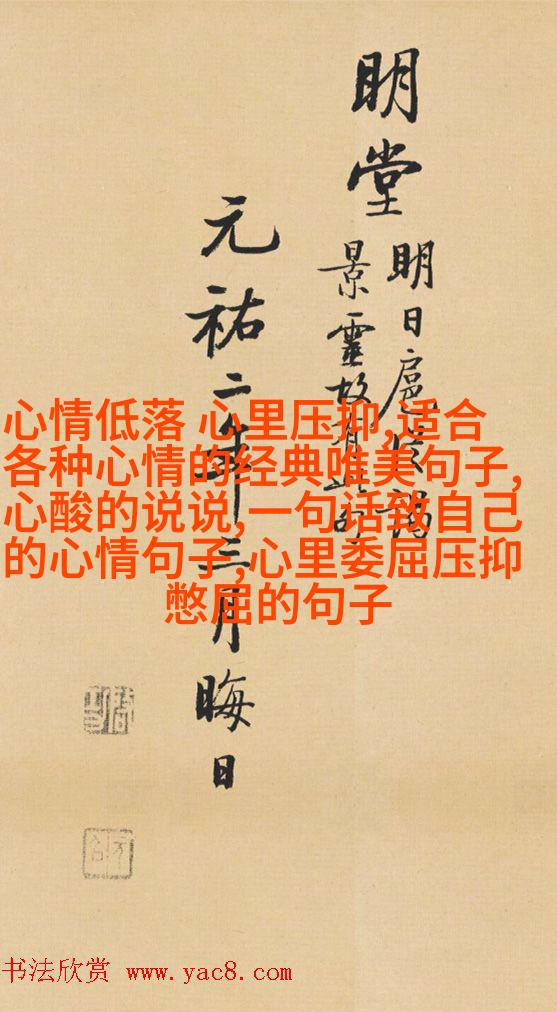 明堂
明日扈從謁
景靈故有此句
元祐二年三月晦日
心情低落 心里压抑,适合
各种心情的经典唯美句子,
心酸的说说,一句话致自己
的心情句子,心里委屈压抑
憋屈的句子
书法欣赏 www.yac8.com